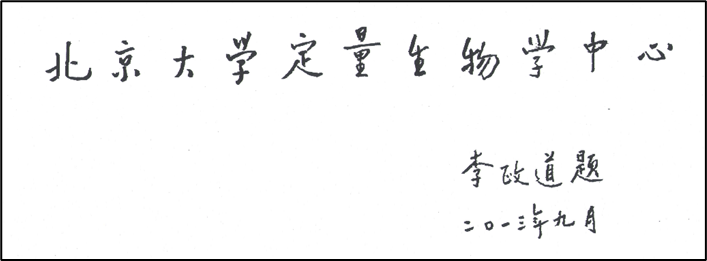 北京大学定量生物学中心
李政道题
二〇一三年九月